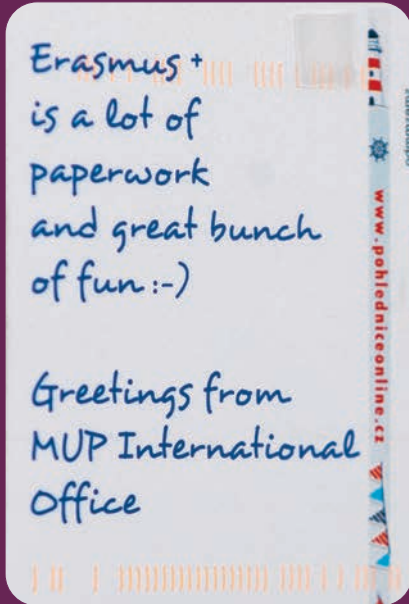 Erasmus +
is a lot of
paperwork
and great bunch
of fun :-)
Greetings from
MUP International
Office
www.pohledniceonline.cz